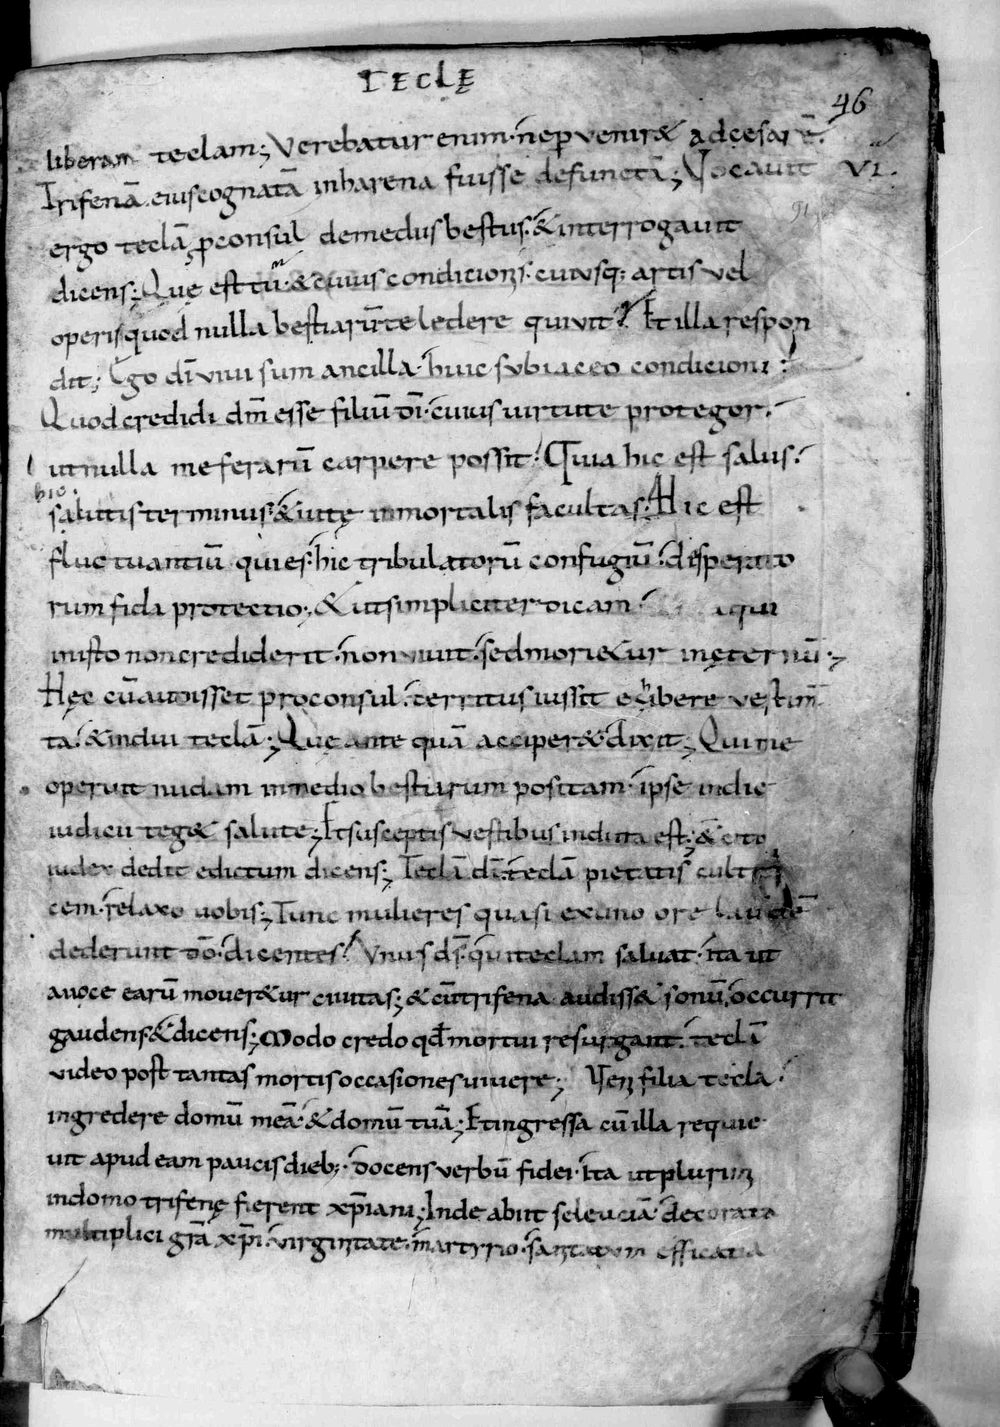 TECLĘ
46
liberam teclam; Verebatur enim · ne ꝑvenir& ad cesarē.
VI.
Trifenā eius cognatā in harena fuisse defunctā; Vocavit
91
ergo teclā ꝓconsul de medus bestus · & interrogavit
dicens; Quę est tu · & cuius condicionis · cuiusq; artis vel
operis quod nulla bestiarū te ledere quivit? Et illa respon
dit; Ego dī vivi sum ancilla · huic subiaceo condicioni ·
Quod credidi dm̄ esse filiū dī · cuius virtute protegor ·
ut nulla me ferarū carpere possit · Quia hic est salus ·
hic
salutis terminus · & vitę inmortalis facultas; Hic est
fluctuantiū quies · hic tribulatorū confugiū · disperato
rum fida protectio; & ut simpliciter dicam · qui
in isto non crediderit · non vivit · sed mori&ur in ęternū ·;
Hęc cū audisset proconsul · territus iussit exhibere vestim̄
ta · & indui teclā; Quę ante quā acciper& dixit; Qui me
operuit nudam in medio bestiarum positam · ipse in die
iudicii teg& salute; Et susceptis vestibus induta est; &
iudex dedit edictum dicens; Teclā dī · teclā pietatis
cem · relaxo vobis; Tunc mulieres quasi ex uno ore
dederunt dō · dicentes · Vnus ds̄ · qui teclam salvat · ita ut
a voce earū mover&ur civitas; & cū trifena audiss& sonū, occurrit
gaudens · & dicens; Modo credo qd̄ mortui resurgant · teclā
video post tantas mortis occasiones vivere; Veni filia tecla ·
ingredere domū meā · & domū tuā; Et ingressa cū illa requie
vit apud eam paucis dieb; · docens verbū fidei · ita ut plurimi
in domo trifenę fierent xp̄iani; Inde abiit seleuciā decorata
multiplici grā xp̄i · virginitate · martyrio ·